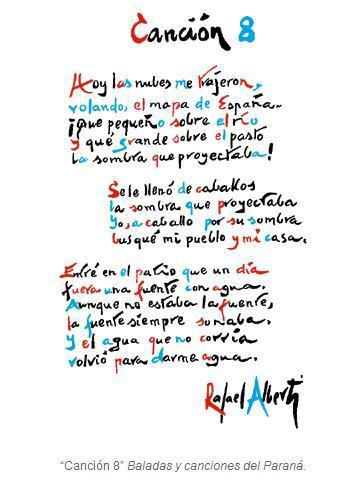 Canción 8
Hoy las nubes me trajeron,
volando, el mapa de España.
¡Qué pequeño sobre el río
y qué grande sobre el pasto
la sombra que proyectaba!
Se le llenó de caballos
la sombra que proyectaba
Yo, a caballo por su sombra
busqué mi pueblo y mi casa.
Entré en el patio que un día
fuera una fuente con agua.
Aunque no estaba la fuente,
la fuente siempre sonaba.
Y el agua que no corría
volvió para darme agua.
Rafael Alberti
“Canción 8” Baladas y canciones del Paraná.